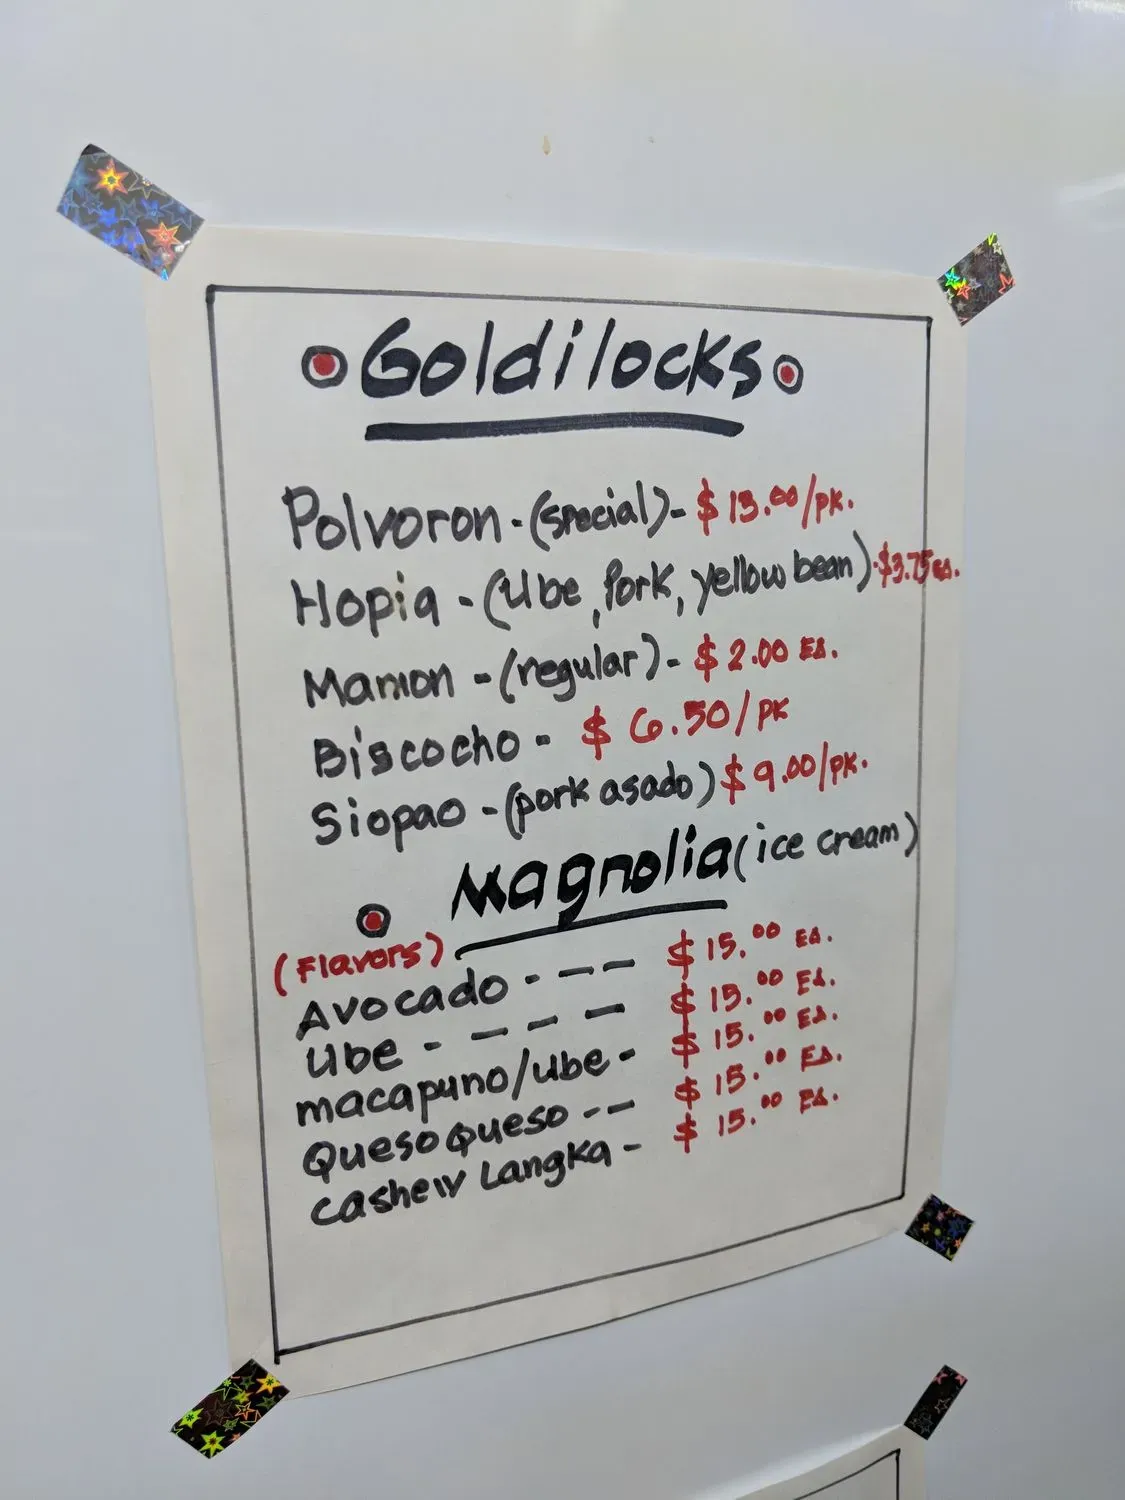 Goldilocks
Polvoron - (special) - $13.00/pk.
Hopia - (Ube, Pork, yellow bean) - $3.75 ea.
Mamon - (regular) - $2.00 EA.
Biscocho - $6.50/PK
Siopao - (pork asado) $9.00/PK.
Magnolia (ice cream)
(Flavors)
Avocado - - - - $15.00 EA.
Ube - - - - $15.00 EA.
macapuno/ube - $15.00 EA.
Queso Queso - - $15.00 EA.
Cashew Langka - $15.00 EA.